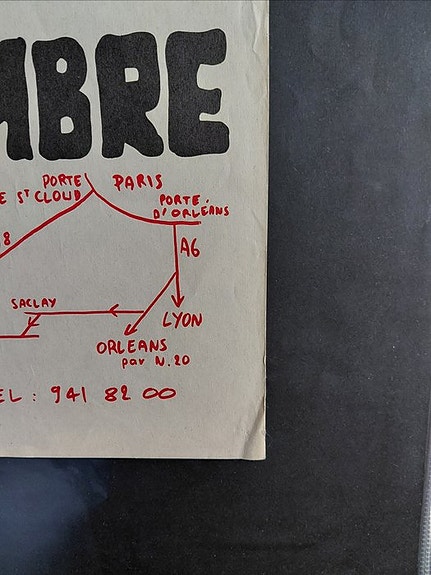 MBRE
PORTE PARIS
E ST CLOUD
PORTE
D'ORLÉANS
8
A6
SACLAY
LYON
ORLEANS
par N.20
EL : 941 82 00